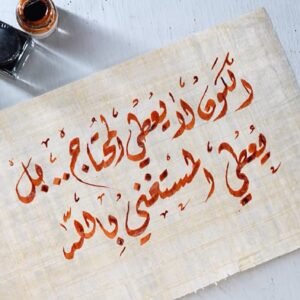 الكون لا يعطي المحتاج .. بل
يعطي المستغني بالله